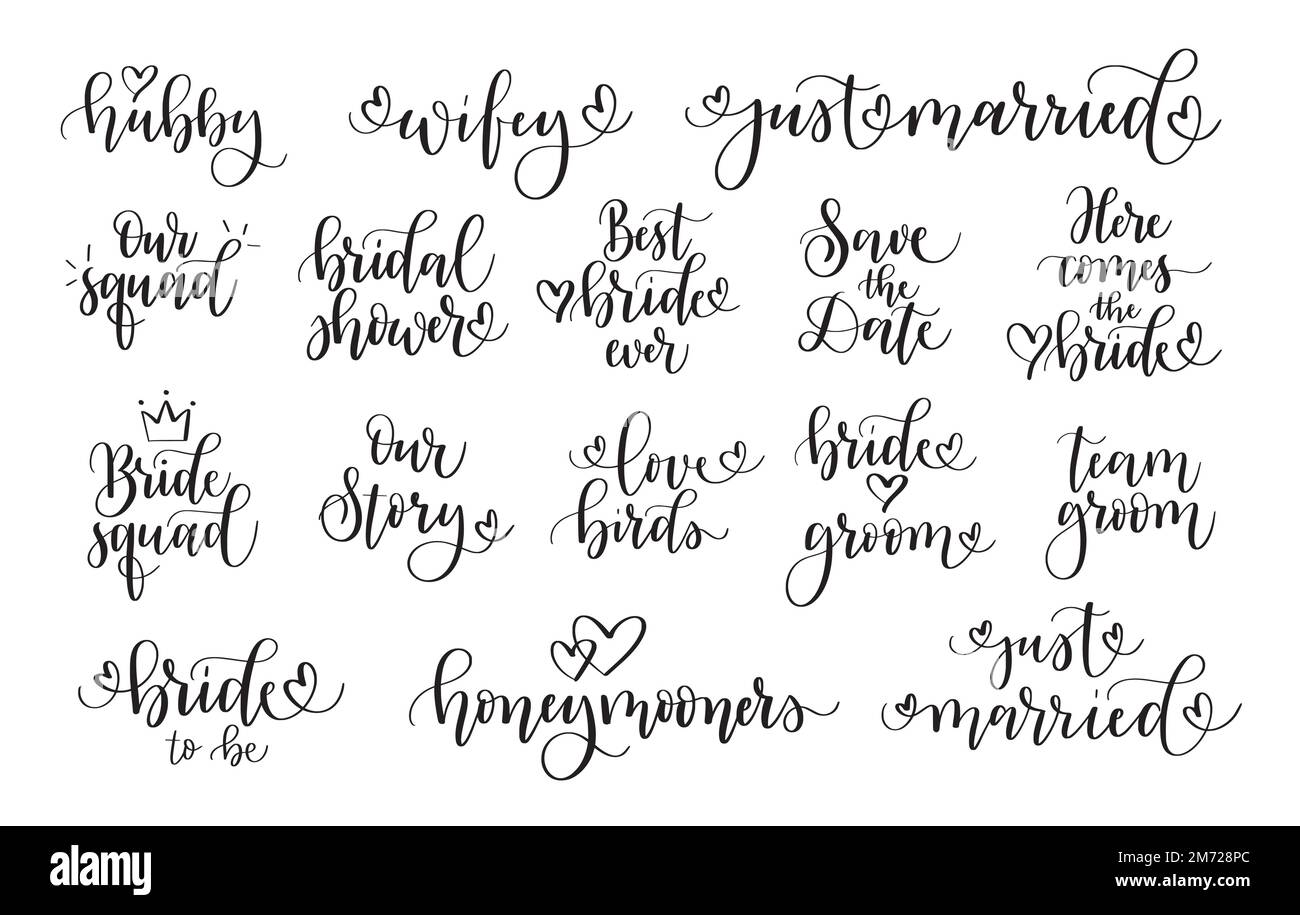 hubby
wifey
just married
Our
squad
bridal
shower
Best
bride
ever
Save
the
Date
Here
comes
the
bride
Bride
squad
Our
Story
love
birds
bride
groom
team
groom
bride
to be
honeymooners
just
married
alamy
Image ID: 2M728PC
www.alamy.com